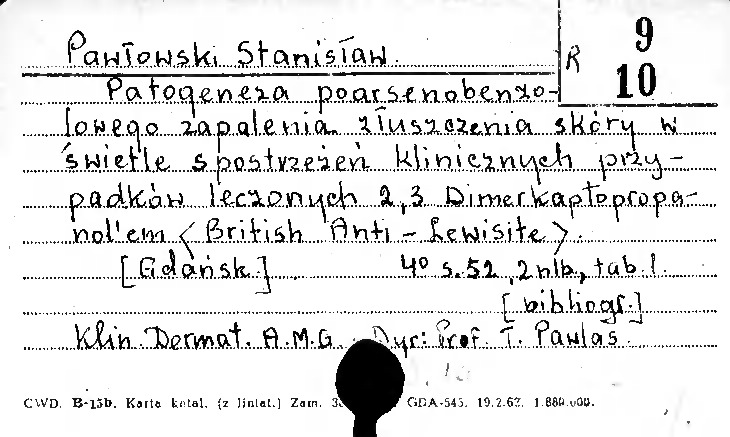 Pawłowski Stanisław.
R 9
10
Patogeneza poarsenobenzo-
lowego zapalenia złuszczenia skóry w
świetle spostrzeżeń klinicznych przy-
padków leczonych 2,3 Dimerkaptopropa-
nol'em <British Anti-Lewisite>.
[Gdańsk] 4° s.52, 2nlb, tab 1.
[bibliogr.]
Klin. Dermat. A.M.G. Dyr: Prof. T. Pawlas
CWD. B-15b. Karta katal. (z liniat.) Zam. GDA-545. 19.2.62. 1.880.000.